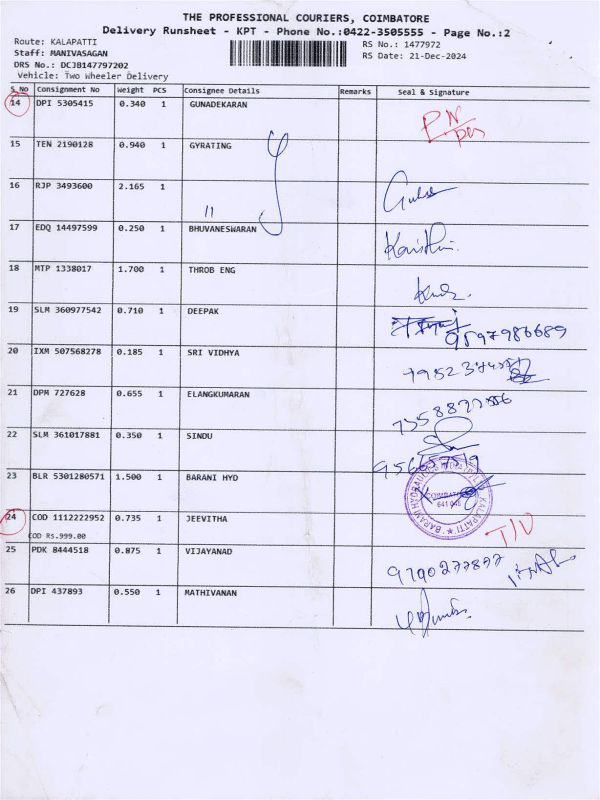 THE PROFESSIONAL COURIERS, COIMBATORE
Delivery Runsheet - KPT - Phone No.:0422-3505555 - Page No.:2
Route: KALAPATTI
RS No.: 1477972
Staff: MANIVASAGAN
RS Date: 21-Dec-2024
DRS No.: DCJB147797202
Vehicle: Two Wheeler Delivery
S_No Consignment No Weight PCS Consignee Details Remarks Seal & Signature
14 DPI 5305415 0.340 1 GUNADEKARAN
15 TEN 2190128 0.940 1 GYRATING
16 RJP 3493600 2.165 1
17 EDQ 14497599 0.250 1 BHUVANESWARAN
18 MTP 1338017 1.700 1 THROB ENG
19 SLM 360977542 0.710 1 DEEPAK 9597986689
20 IXM 507568278 0.185 1 SRI VIDHYA
21 DPM 727628 0.655 1 ELANGKUMARAN
22 SLM 361017881 0.350 1 SINDU
23 BLR 5301280571 1.500 1 BARANI HYD
24 COD 1112222952 0.735 1 JEEVITHA
COD Rs.999.00
25 PDK 8444518 0.875 1 VIJAYANAD 9790277877
26 DPI 437893 0.550 1 MATHIVANAN